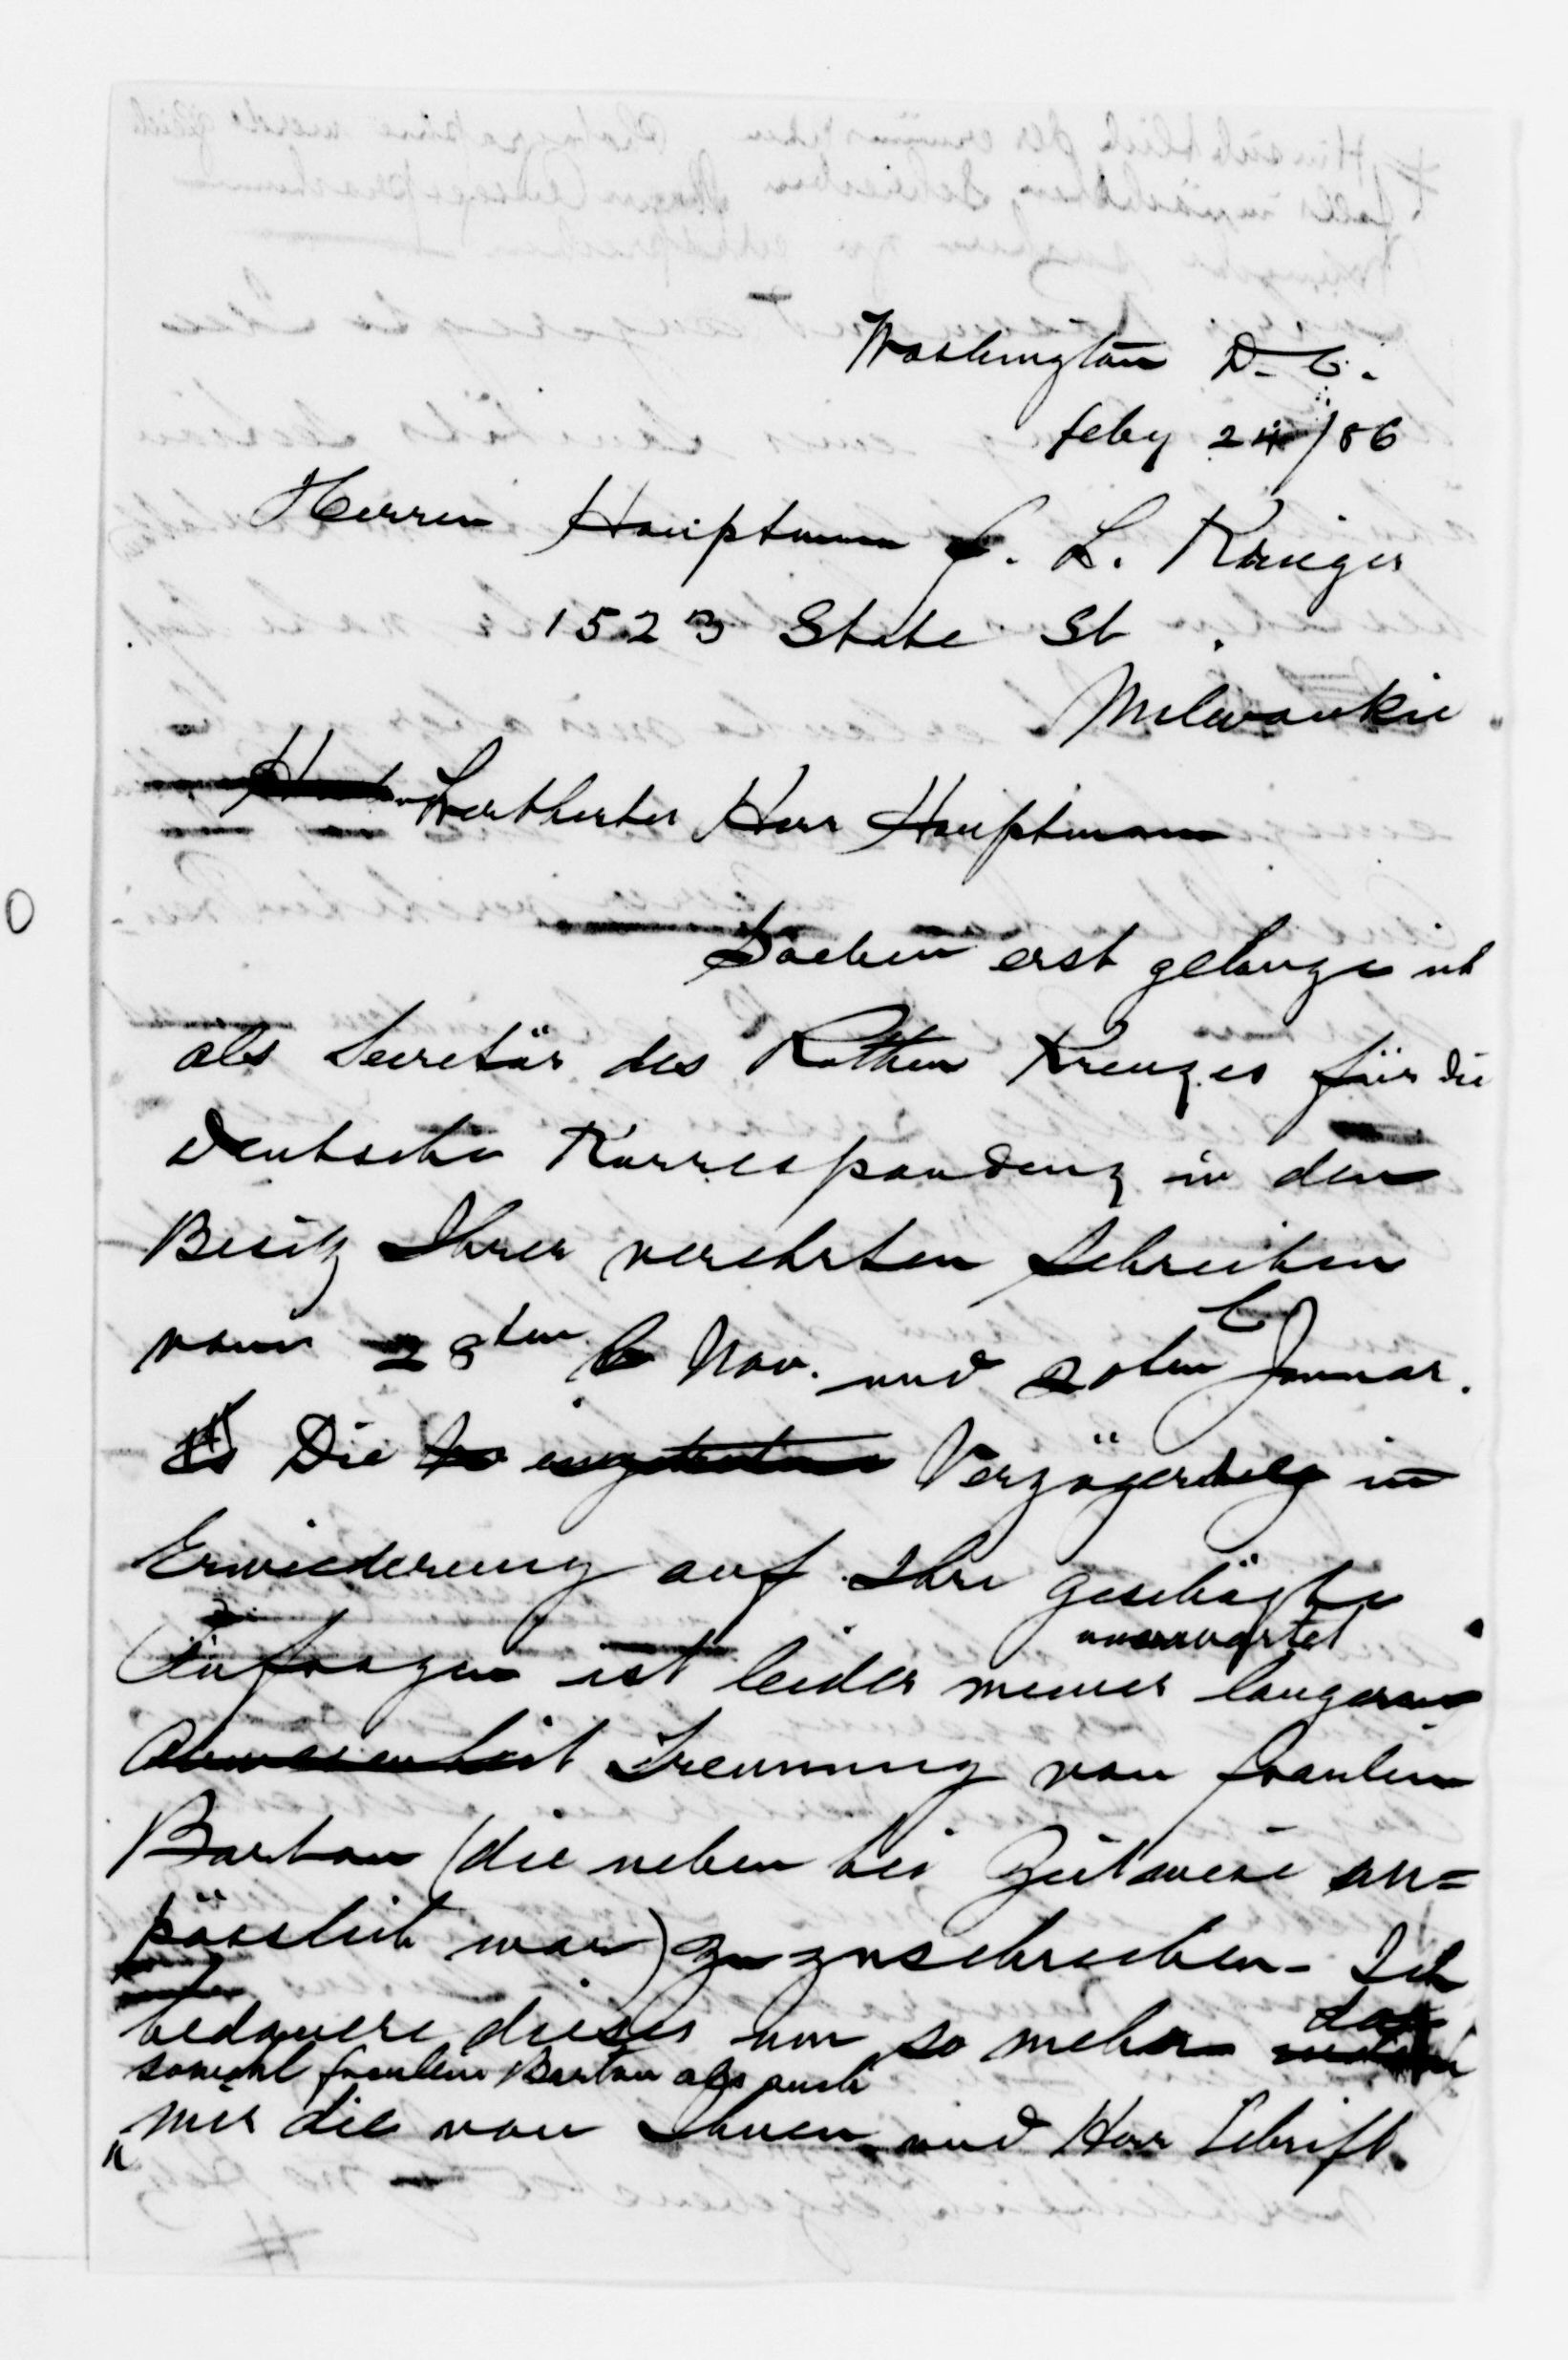 Washington D. C.
feby 24/86
Herren Hauptmann C. L. Krueger
1523 State St.
Milwaukie
Werthester Herr Hauptmann
Soeben erst gelange ich
als Secretär des Rothen Kreuzes für die
Deutsche Korrespondenz in den
Besitz Ihrer verehrten Schreiben
vom 28ten Nov. und 20ten Januar.
Die eingetretene Verzögerung in
Erwiederung auf Ihre geschäzte
Anfragen ist leider meiner langeren
unerwartet
Abwesenheit Trennung von fraulein
Barton (die neben bei Zeitweise un=
pässlich war) zuzuschreiben - Ich
bedauere dieses um so mehr da
sowohl fraulein Barton als auch
mir die von Ihnen und Herr Schrift